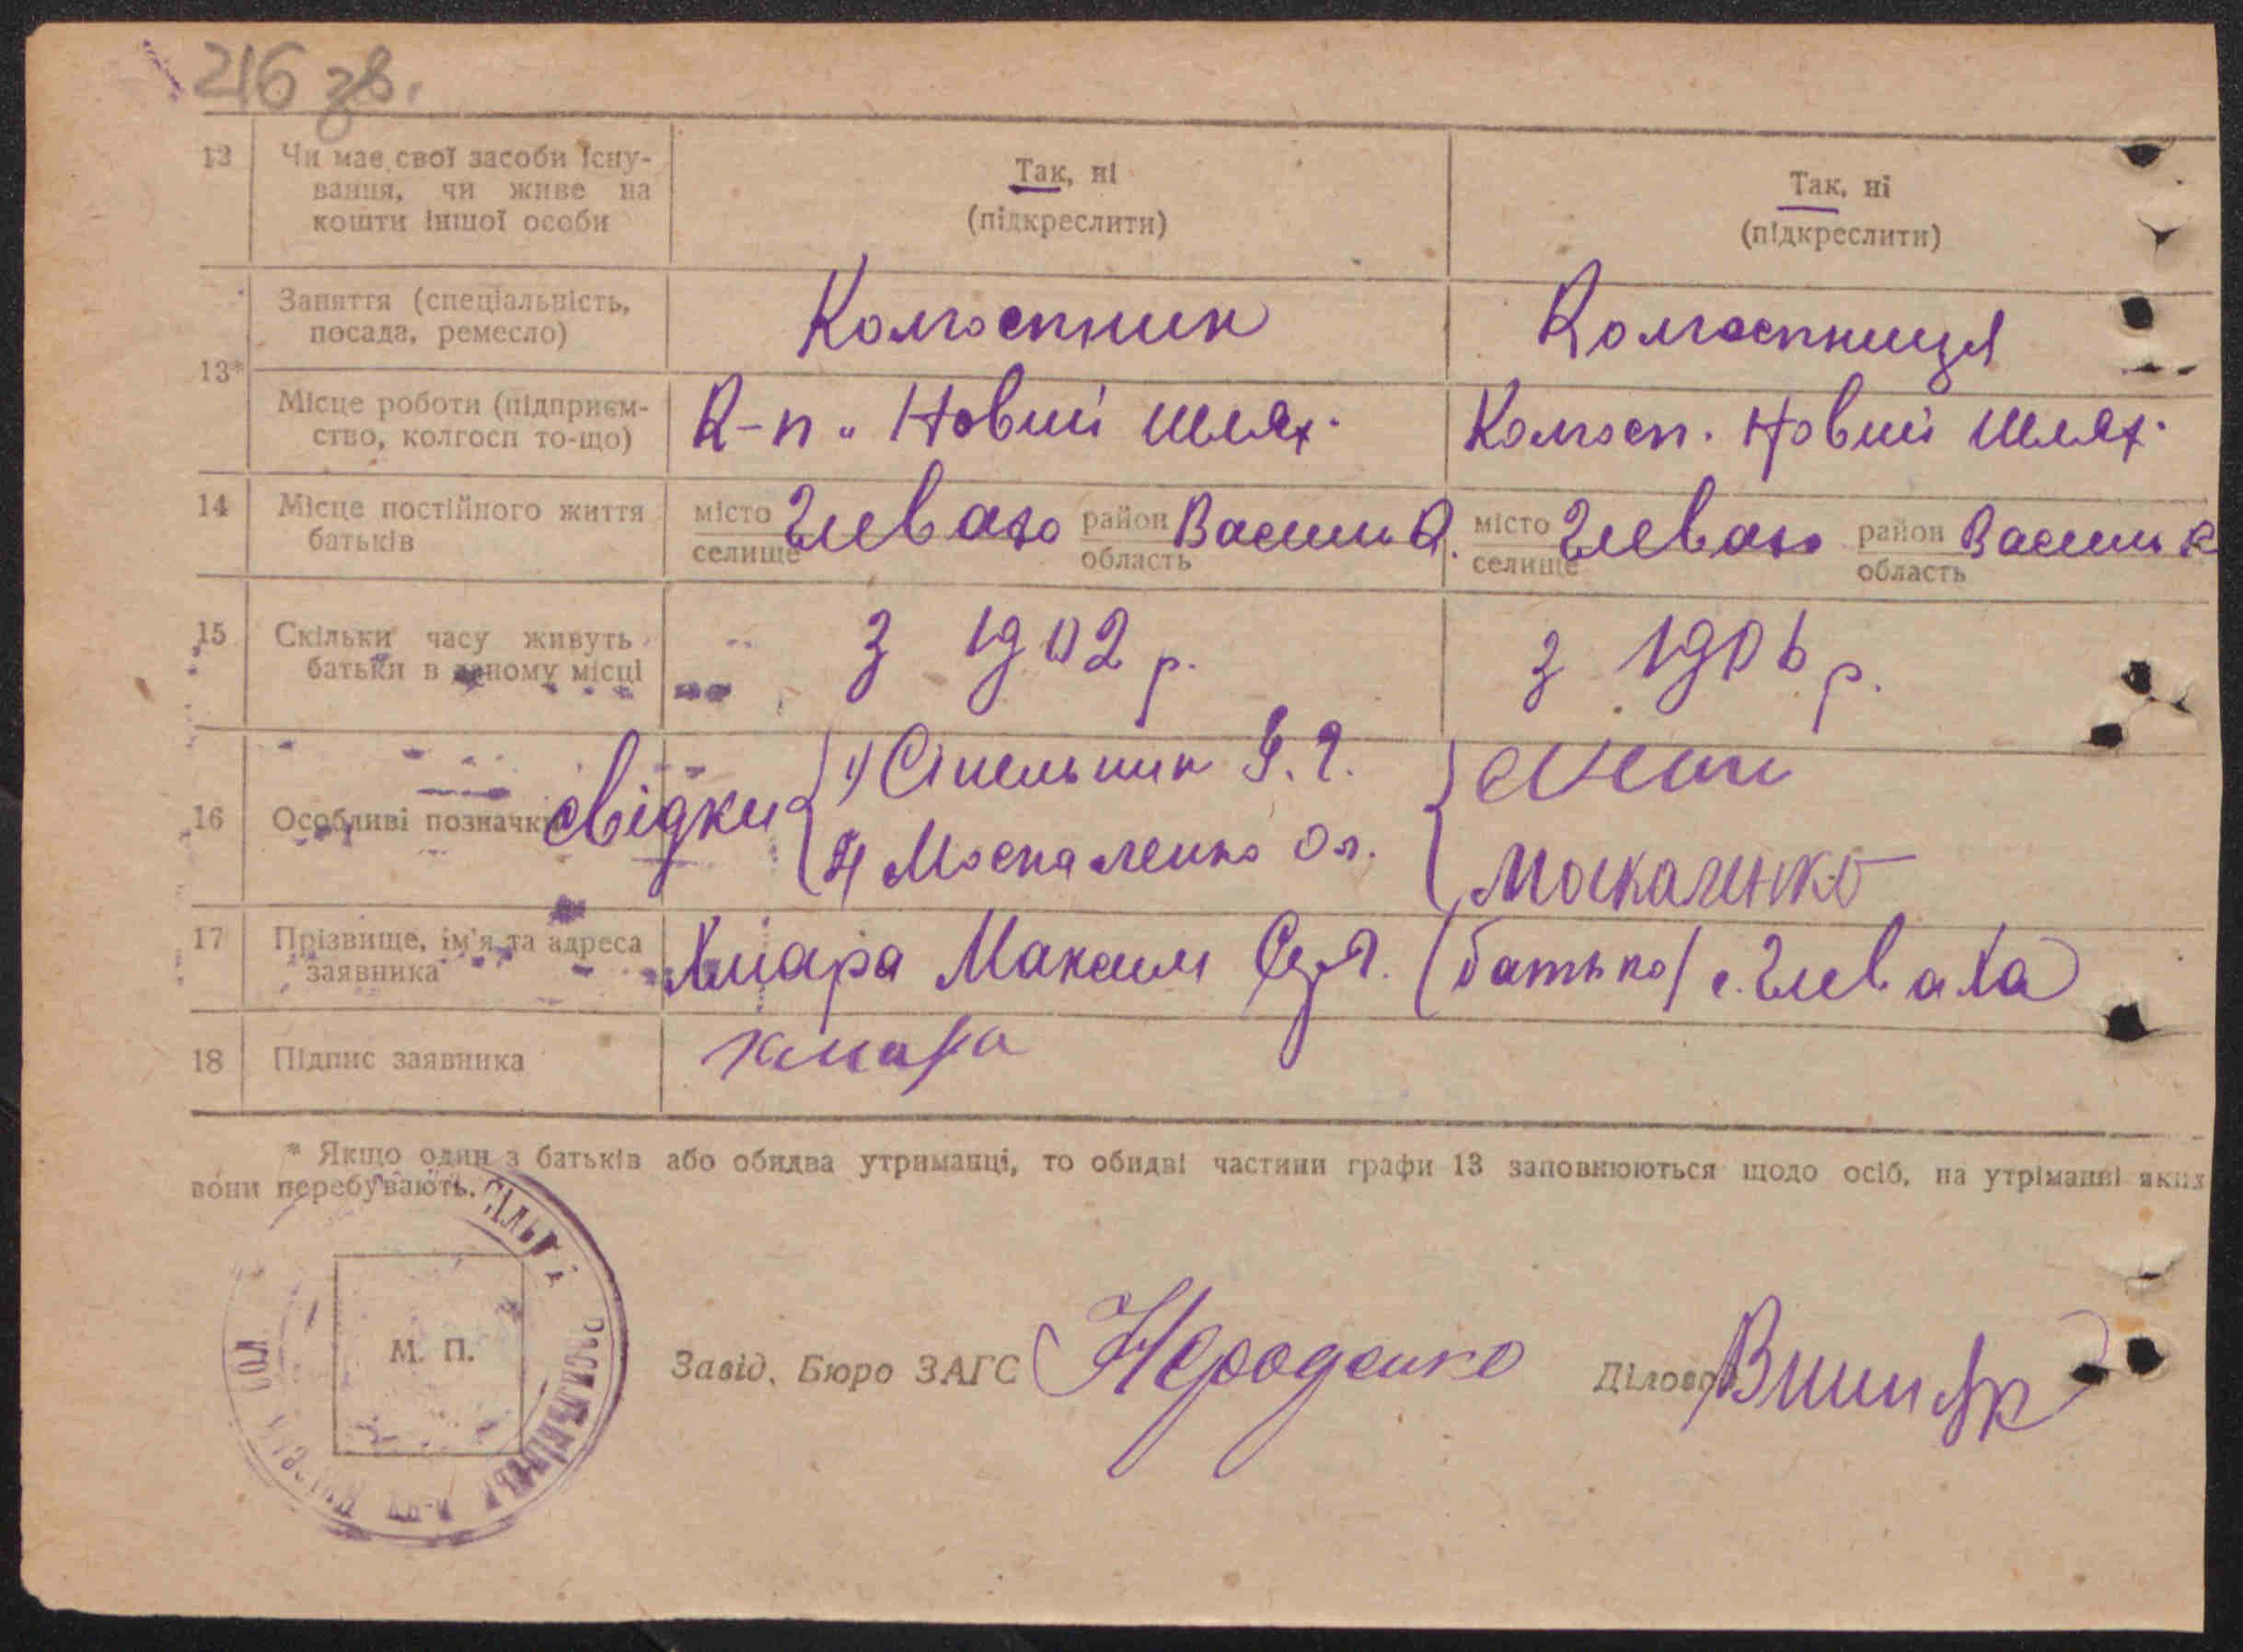 216 зв.
12 Чи має свої засоби існу-
вання, чи живе на
кошти іншої особи
Так, ні
(підкреслити)
Так, ні
(підкреслити)
13*
Заняття (спеціальність,
посада, ремесло)
Колгоспник
Колгоспниця
Місце роботи (підприєм-
ство, колгосп то-що)
К-п „ Новий шлях.
Колгосп. Новий шлях.
14 Місце постійного життя
батьків
місто
селище
Глеваха
район
область
Васильк.
місто
селище
Глеваха
район
область
Васильк
15 Скільки часу живуть
батьки в даному місці
з 1902 р.
з 1906 р.
16 Особливі позначки
свідки
1)
2) Москаленко Ол.
Москаленко
17 Прізвище, ім'я та адреса
заявника
Хмара Максим (батько) с. Глеваха
18 Підпис заявника
хмара
* Якщо один з батьків або обидва утриманці, то обидві частини графи 13 заповнюються щодо осіб, на утріманні яких
вони перебувають.
М. П.
Завід. Бюро ЗАГС
Нероденко
Діловод